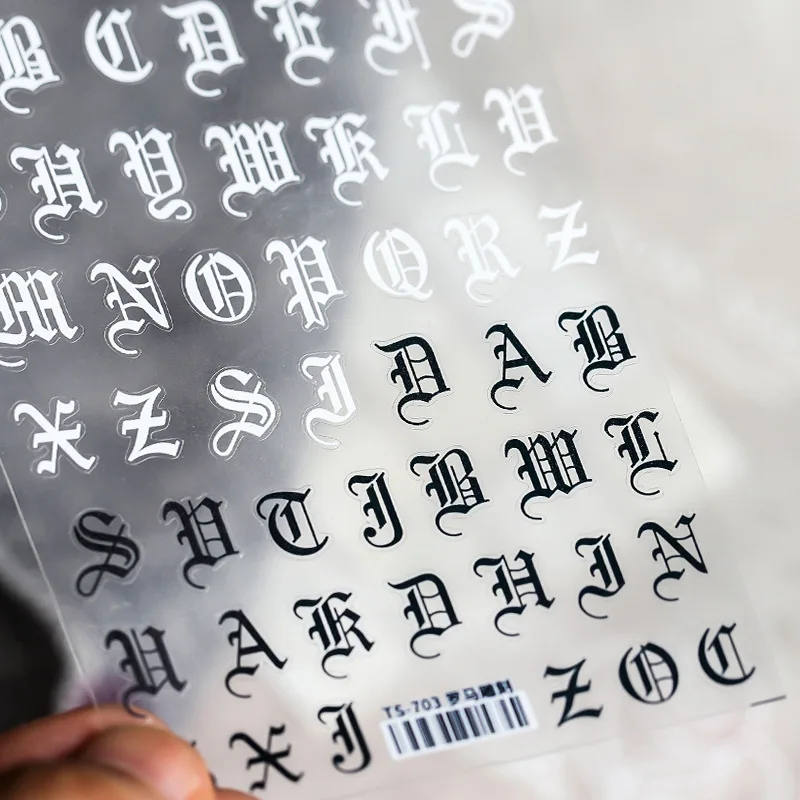 B C D E F S
H Y W K L V
M N O P Q R Z
X Z S I D A B
S V T J B W L
U A K D H I N
X J TS-703 罗马雕刻 Z O C